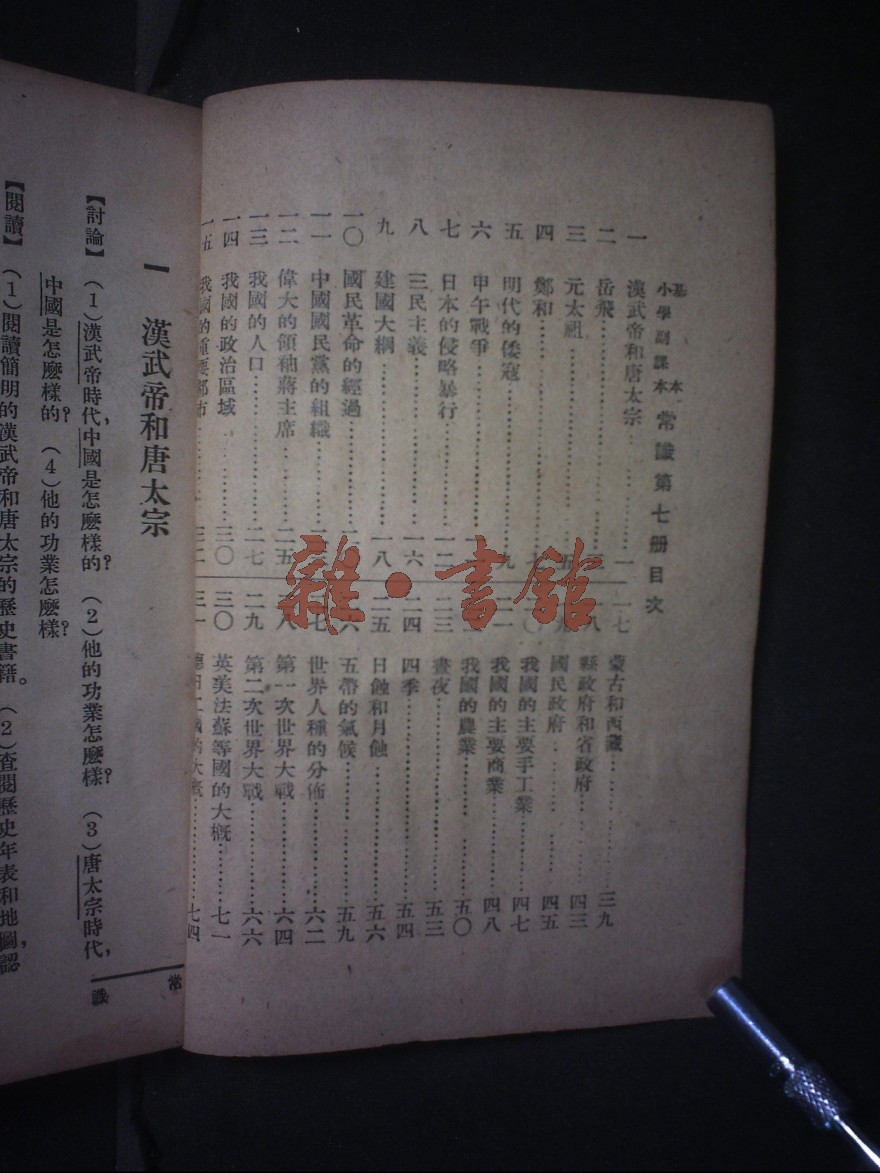 基本小學副課本 常識第七册目次
一 漢武帝和唐太宗……一
二 岳飛……
三 元太祖……五
四 鄭和……七
五 明代的倭寇……九
六 甲午戰爭……
七 日本的侵略暴行……一二
八 三民主義……一六
九 建國大綱……一八
一〇 國民革命的經過……二
一一 中國國民黨的組織……二三
一二 偉大的領袖蔣主席……二五
一三 我國的人口……二七
一四 我國的政治區域……三〇
一五 我國的重要都市……三二
一七 蒙古和西藏……三九
一八 縣政府和省政府……四三
九 國民政府……四五
二〇 我國的主要手工業……四七
一 我國的主要商業……四八
二 我國的農業……五〇
二三 晝夜……五三
二四 四季……五四
二五 日蝕和月蝕……五六
二六 五帶的氣候……五九
七 世界人種的分佈……六二
八 第一次世界大戰……六四
二九 第二次世界大戰……六六
三〇 英美法蘇等國的大概……七一
三一 德日二國的大……七四
雜·書館
常識
一 漢武帝和唐太宗
【討論】 (1)漢武帝時代,中國是怎麽樣的? (2)他的功業怎麽樣? (3)唐太宗時代,
中國是怎麽樣的? (4)他的功業怎麽樣?
【閱讀】 (1)閱讀簡明的漢武帝和唐太宗的歷史書籍。 (2)查閱歷史年表和地圖,認